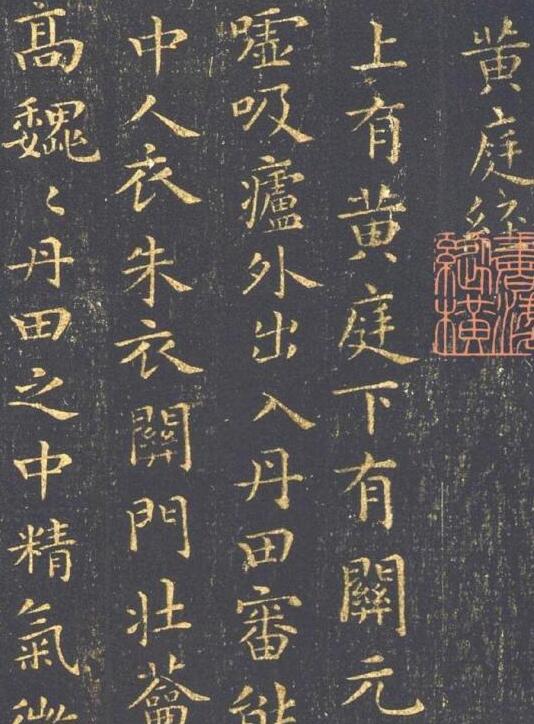 黄庭經
書海
縱橫
上有黄庭下有關元
嘘吸廬外出入丹田審能
中人衣朱衣關門壯蘥
高巍〻丹田之中精氣微